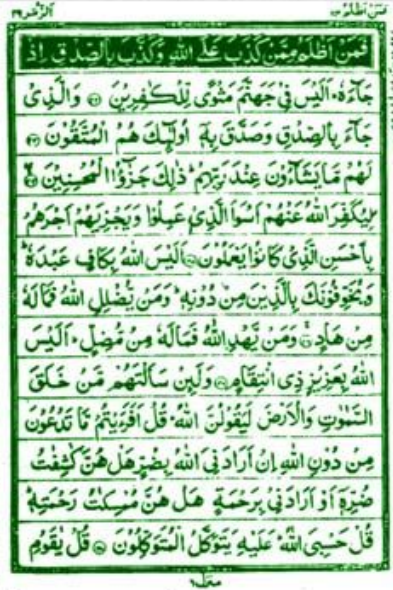 فمن اظلم ٢٤ الزمر ٣٩
فَمَنْ اَظْلَمُ مِمَّنْ كَذَبَ عَلَى اللّٰهِ وَكَذَّبَ بِالصِّدْقِ اِذْ
جَآءَهٗ ؕ اَلَيْسَ فِيْ جَهَنَّمَ مَثْوًى لِّلْكٰفِرِيْنَ ۝ وَالَّذِيْ
جَآءَ بِالصِّدْقِ وَصَدَّقَ بِهٖٓ اُولٰٓئِكَ هُمُ الْمُتَّقُوْنَ ۝
لَهُمْ مَّا يَشَآءُوْنَ عِنْدَ رَبِّهِمْ ؕ ذٰلِكَ جَزٰٓؤُا الْمُحْسِنِيْنَ ۝
لِيُكَفِّرَ اللّٰهُ عَنْهُمْ اَسْوَاَ الَّذِيْ عَمِلُوْا وَيَجْزِيَهُمْ اَجْرَهُمْ
بِاَحْسَنِ الَّذِيْ كَانُوْا يَعْمَلُوْنَ ۝ اَلَيْسَ اللّٰهُ بِكَافٍ عَبْدَهٗ ؕ
وَيُخَوِّفُوْنَكَ بِالَّذِيْنَ مِنْ دُوْنِهٖ ؕ وَمَنْ يُّضْلِلِ اللّٰهُ فَمَا لَهٗ
مِنْ هَادٍ ۝ وَمَنْ يَّهْدِ اللّٰهُ فَمَا لَهٗ مِنْ مُّضِلٍّ ؕ اَلَيْسَ
اللّٰهُ بِعَزِيْزٍ ذِي انْتِقَامٍ ۝ وَلَئِنْ سَاَلْتَهُمْ مَّنْ خَلَقَ
السَّمٰوٰتِ وَالْاَرْضَ لَيَقُوْلُنَّ اللّٰهُ ؕ قُلْ اَفَرَءَيْتُمْ مَّا تَدْعُوْنَ
مِنْ دُوْنِ اللّٰهِ اِنْ اَرَادَنِيَ اللّٰهُ بِضُرٍّ هَلْ هُنَّ كٰشِفٰتُ
ضُرِّهٖٓ اَوْ اَرَادَنِيْ بِرَحْمَةٍ هَلْ هُنَّ مُمْسِكٰتُ رَحْمَتِهٖ ؕ
قُلْ حَسْبِيَ اللّٰهُ ؕ عَلَيْهِ يَتَوَكَّلُ الْمُتَوَكِّلُوْنَ ۝ قُلْ يٰقَوْمِ